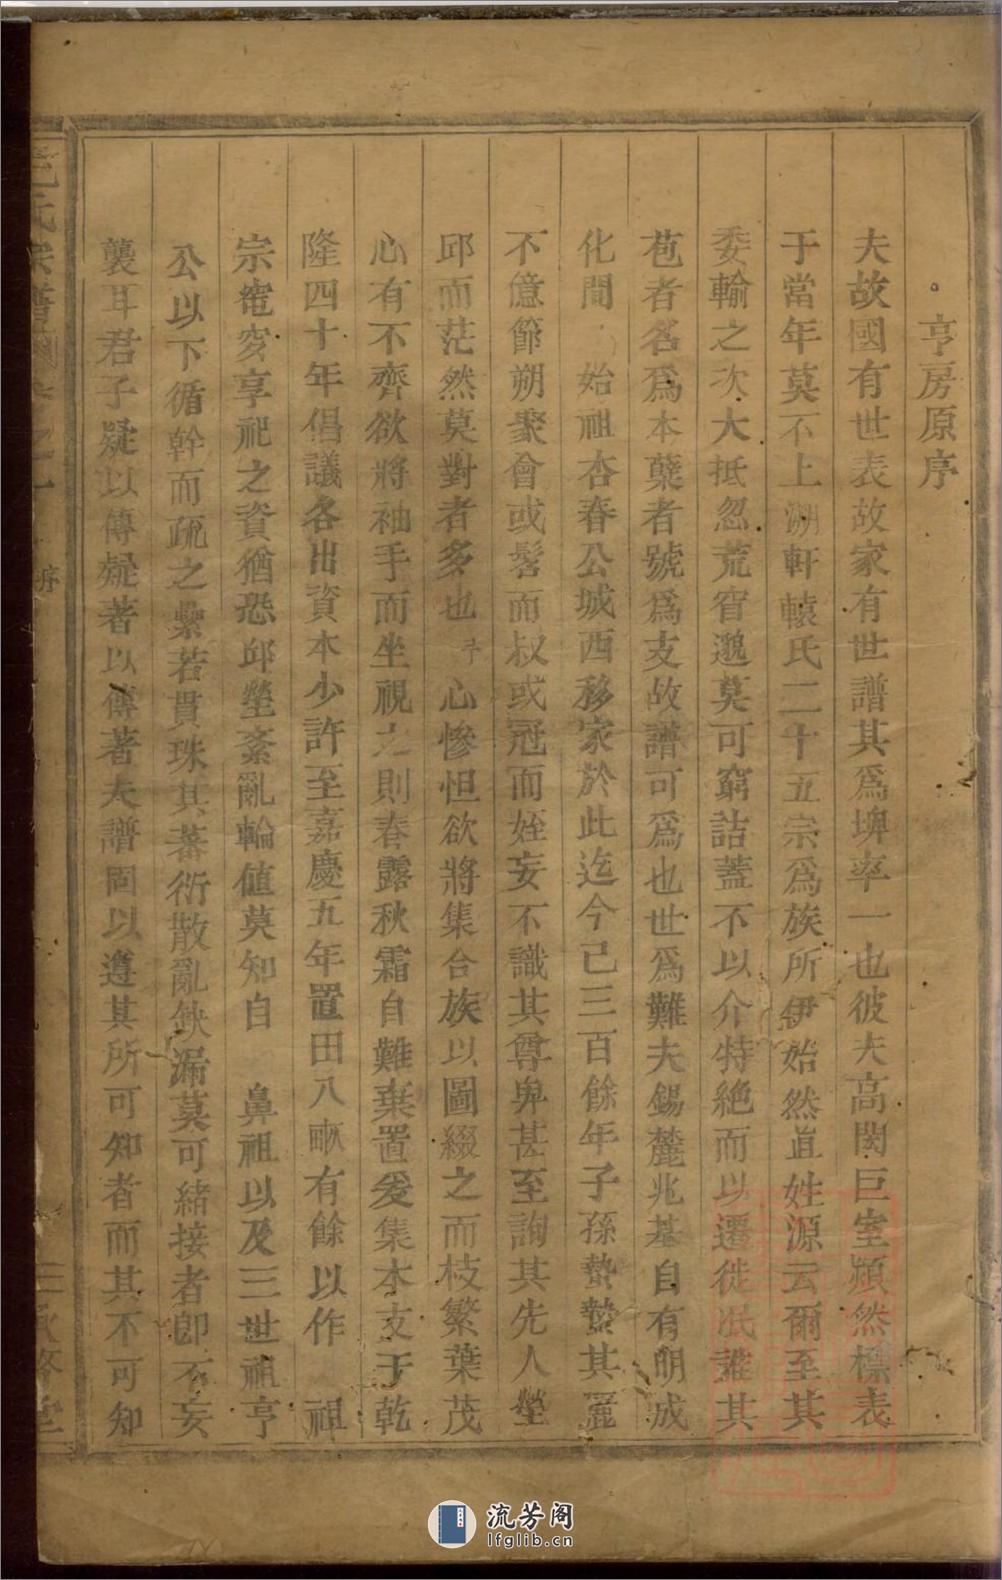 亨房原序
夫故國有世表故家有世譜其爲埤率一也彼夫高閎巨室頴然標表
于當年莫不上溯軒轅氏二十五宗爲族所伊始然追姓源云爾至其
委輸之次大抵忽荒窅邈莫可窮詰蓋不以介特絶而以遷徙冺誰其
苞者名爲本蘖者號爲支故譜可爲也世爲難夫錫麓兆基自有明成
化間 始祖杏春公城西移家於此迄今已三百餘年子孫蟄蟄其麗
不億節朔聚會或髫而叔或冠而姪妄不識其尊卑甚至詢其先人塋
邱而茫然莫對者多也 予 心慘怛欲將集合族以圖綴之而枝繁葉茂
心有不齊欲將袖手而坐視之則春露秋霜自難棄置爰集本支于乾
隆四十年倡議各出資本少許至嘉慶五年置田八畝有餘以作 祖
宗窀穸享祀之資猶恐邱塋紊亂輪值莫知自 鼻祖以及三世祖亨
公以下循幹而疏之纍若貫珠其蕃衍散亂缺漏莫可緒接者卽不妄
襲耳君子疑以傳疑著以傳著夫譜固以遵其所可知者而其不可知
氏宗譜 序
流芳阁
lfglib.cn